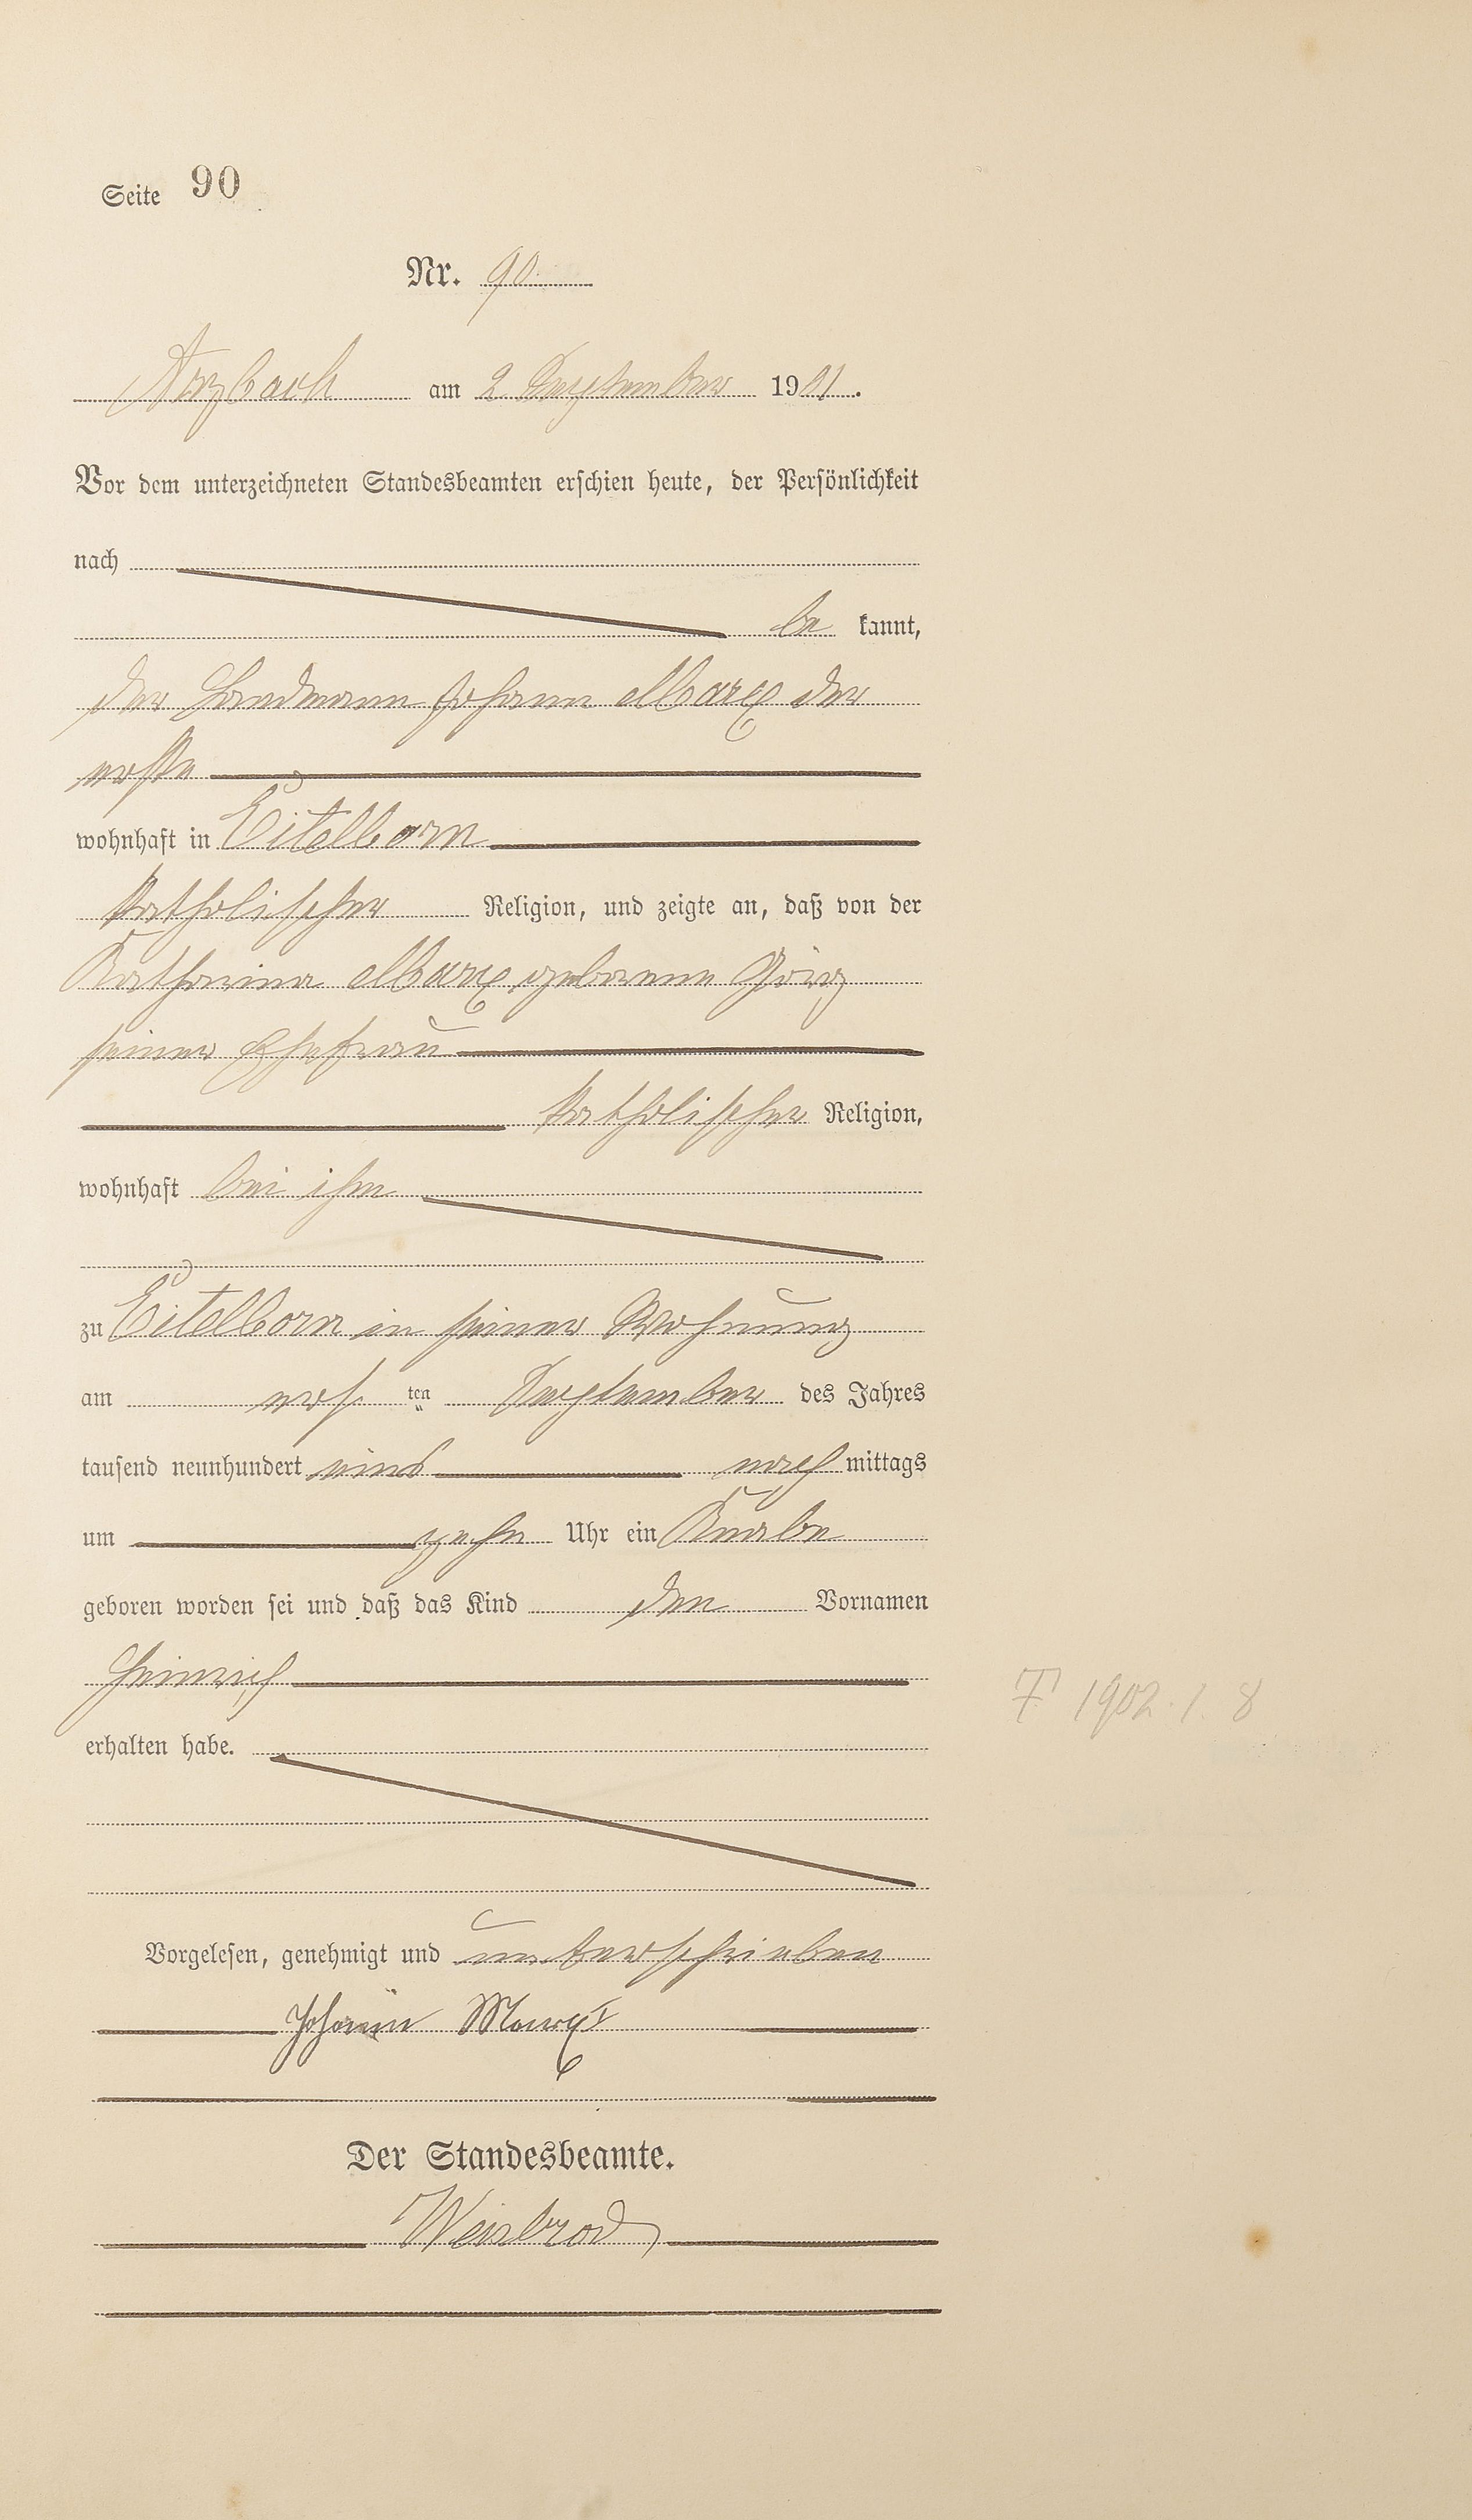 Seite 90
Nr. 90
Arzbach am 2 September 1901.
Vor dem unterzeichneten Standesbeamten erschien heute, der Persönlichkeit
nach
be kannt,
der Landmann Johann Marx der
erste
wohnhaft in Eitelborn
katholischer Religion, und zeigte an, daß von der
Katharina Marx geborene
seiner Ehefrau
katholischer Religion,
wohnhaft bei ihm
zu Eitelborn in seiner Wohnung
am ers ten September des Jahres
tausend neunhundert eins nach mittags
um zehn Uhr ein Knabe
geboren worden sei und daß das Kind den Vornamen
Heinrich
† 1902. 1. 8
erhalten habe.
Vorgelesen, genehmigt und unterschrieben
Johann Marx I
Der Standesbeamte.
Weisbrod